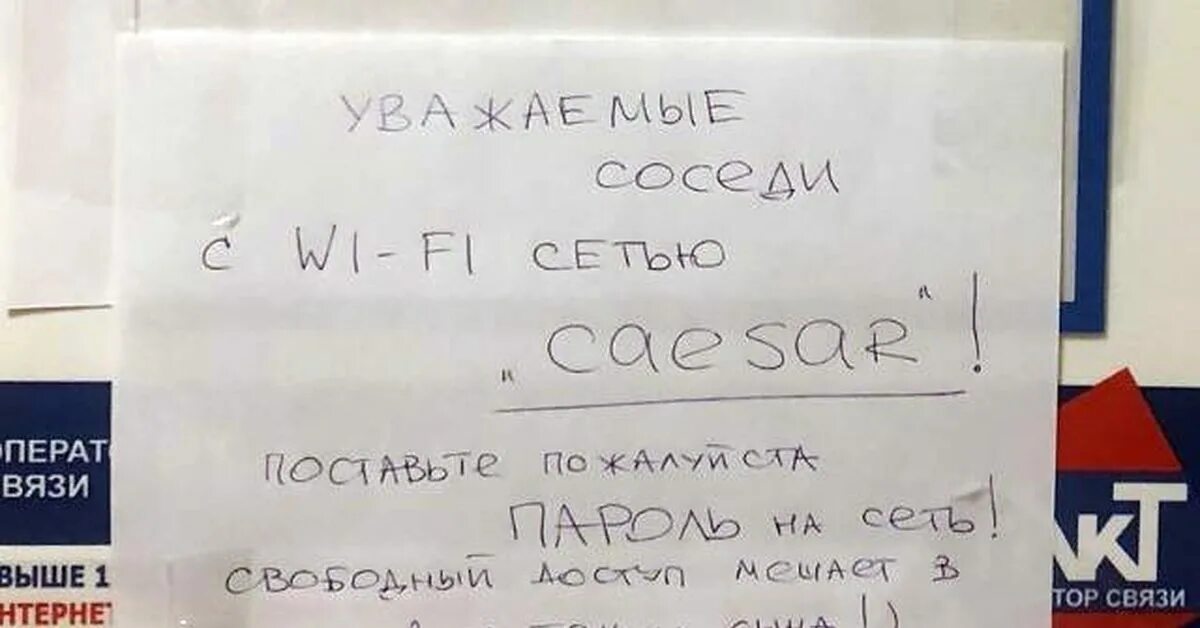 УВАЖАЕМЫЕ
СОСЕДИ
С WI-FI СЕТЬЮ
"CAESAR"!
ПОСТАВЬТЕ ПОЖАЛУЙСТА
ПАРОЛЬ НА СЕТЬ!
СВОБОДНЫЙ ДОСТУП МЕШАЕТ В
СЫНА!)
ОПЕРАТ
ВЯЗИ
ВЫШЕ 1
НТЕРНЕТ
АКТ
ТОР СВЯЗИ